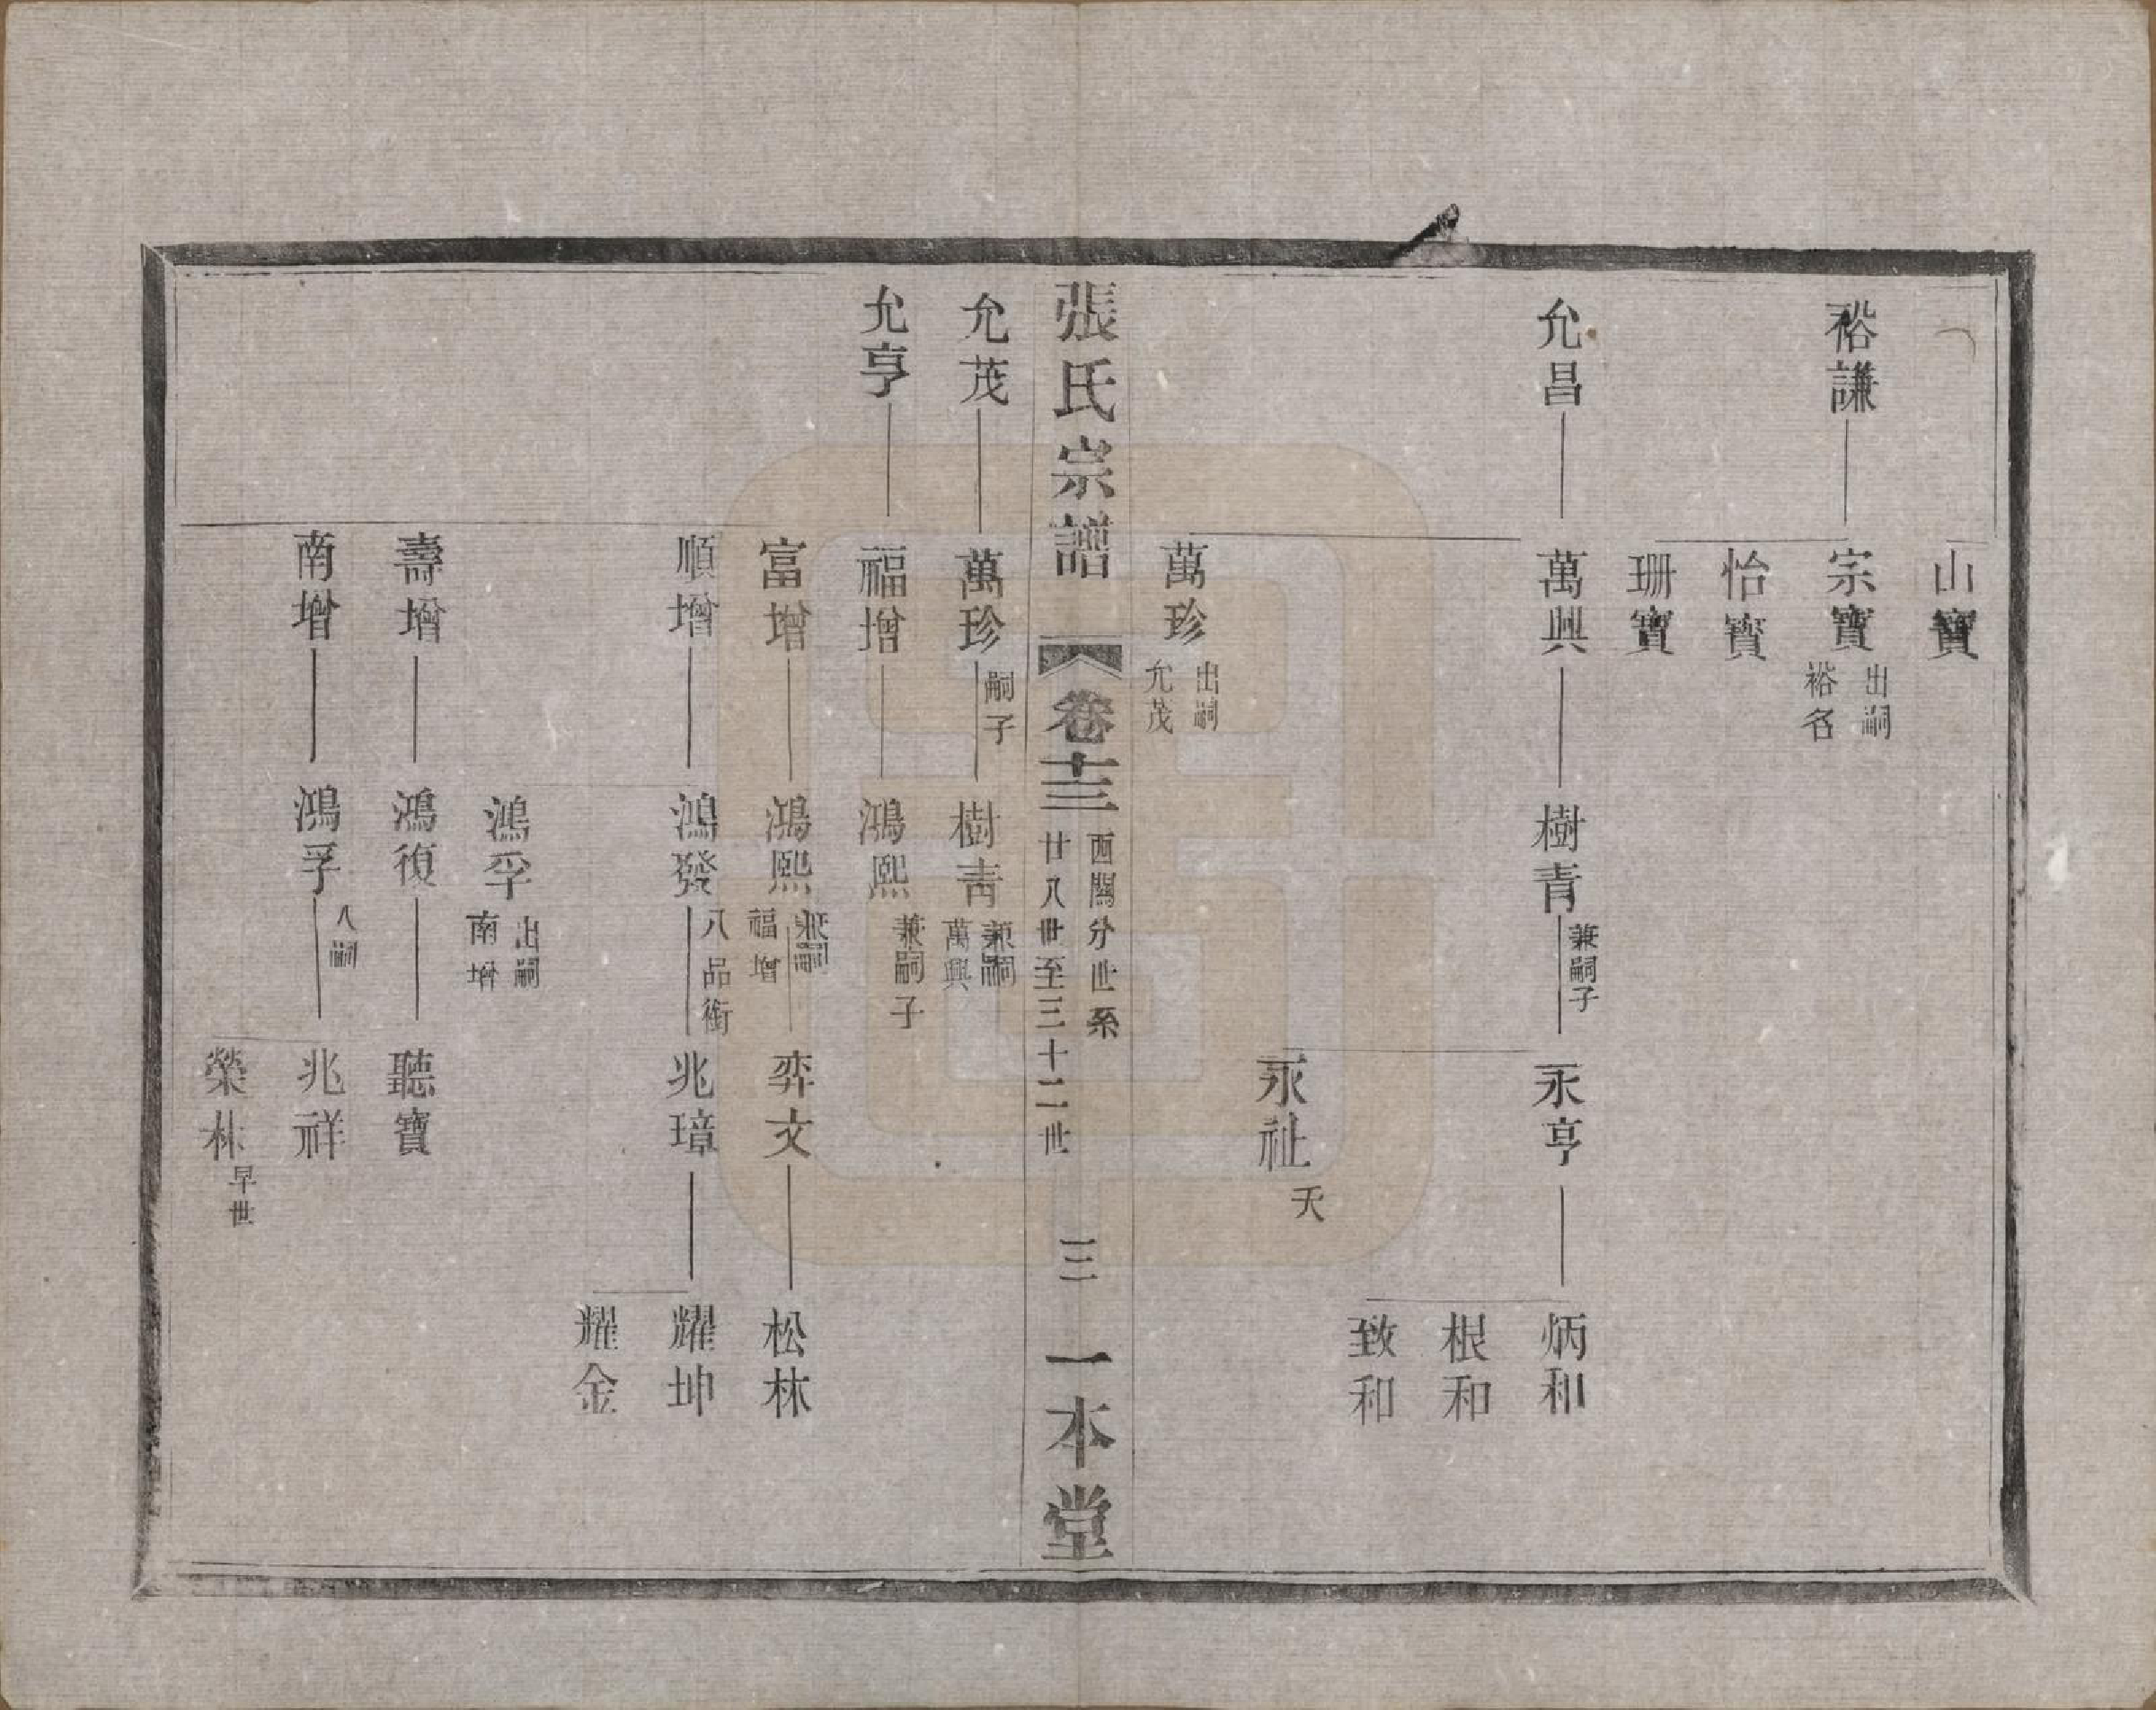 山寶
裕謙
宗寶
出嗣
裕名
怡寶
珊寶
允昌
萬興
樹青
兼嗣子
永亨
炳和
根和
致和
永祉
夭
萬珍
出嗣
允茂
張氏宗譜
卷十三
西關分世系
廿八世至三十二世
三
一本堂
允茂
萬珍
嗣子
樹青
兼嗣
萬興
允亨
福增
鴻熙
兼嗣子
富增
鴻熙
兼嗣
福增
弈文
松林
順增
鴻發
八品銜
兆璋
耀坤
耀金
鴻孚
出嗣
南增
壽增
鴻復
聽寶
南增
鴻孚
入嗣
兆祥
榮林
早世